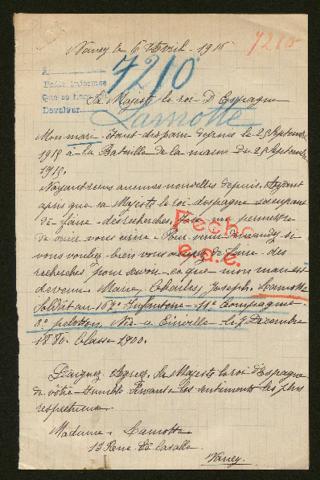 Nancy le 6 Avril 1915
7210
7210
Sa Majesté le roi D'Espagne
Lamotte
Mon mari étant disparu depuis le 25 Septembre
à la Bataille de la marne du 25 Septembre
1915.
N'ayant reçu aucunes nouvelles depuis. Ayant
apris que sa Majesté le roi d'espagne
de faire des recherches, je me permets
de vous écrire Pour vous demander si
vous voulez bien vous faire des
recherches pour savoir ce que mon mari est
devenu. Charles Joseph Lamotte
Soldat au 167e Infanterie 11e Compagnie
3e peloton, Né a Einville le 5 Décembre
1880. Classe 1900.
Fecho
e.a.e.
Daignez Agréer, sa Majesté le roi d'Espagne
de votre humble Servante les sentiments les plus
respectueux
Madame Lamotte
13 Rue de la Salle
Nancy.